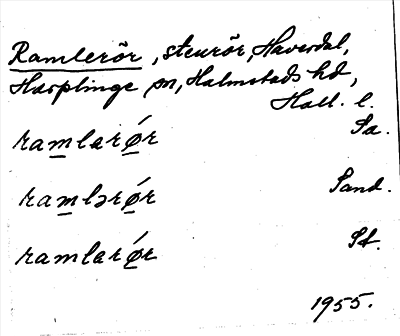 Ramlerör, stenrör, Haverdal,
Harplinge sn, Halmstads hd,
Hall. l.
ramlarǿr Sa.
ramlərǿr Sand.
ramlarǿr St.
1955.